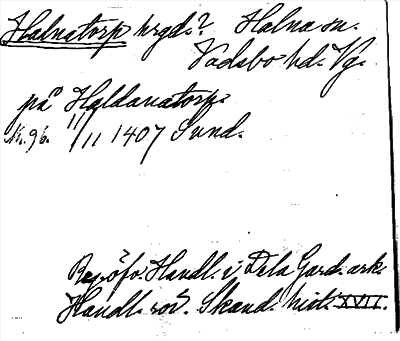 Halnatorp hrgd.? Halna sn.
Vadsbo hd. Vg.
på Haldanatorp.
Nr. 96. 11/11 1407 Sund.
Rep. öfv. Handl. i De la Gard. ark.
Handl. rör. Skand. hist. XVII.